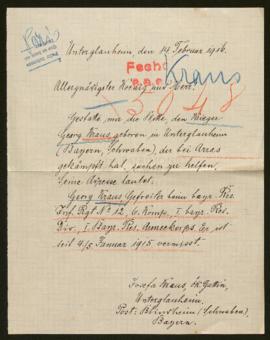 Paris
Unterglauheim den 14. Februar 1916.
Fecha
Kraus
Allergnädigster König und Herr!
3048
Gestatte mir die Bitte, den Krieger
Georg Kraus geboren in Unterglauheim
(Bayern, Schwaben), der bei Arras
gekämpft hat, suchen zu helfen.
Seine Adresse lautet:
Georg Kraus, Gefreiter beim bayr. Res.
Inf. Rgt. No 12, 6. Komp., I bayr. Res.
Div., I. Bayr. Res. Armeekorps. Er ist
seit 4/5 Januar 1915 vermisst.
Josefa Kraus,
Unterglauheim.
Post: Blindheim (Schwaben),
Bayern.